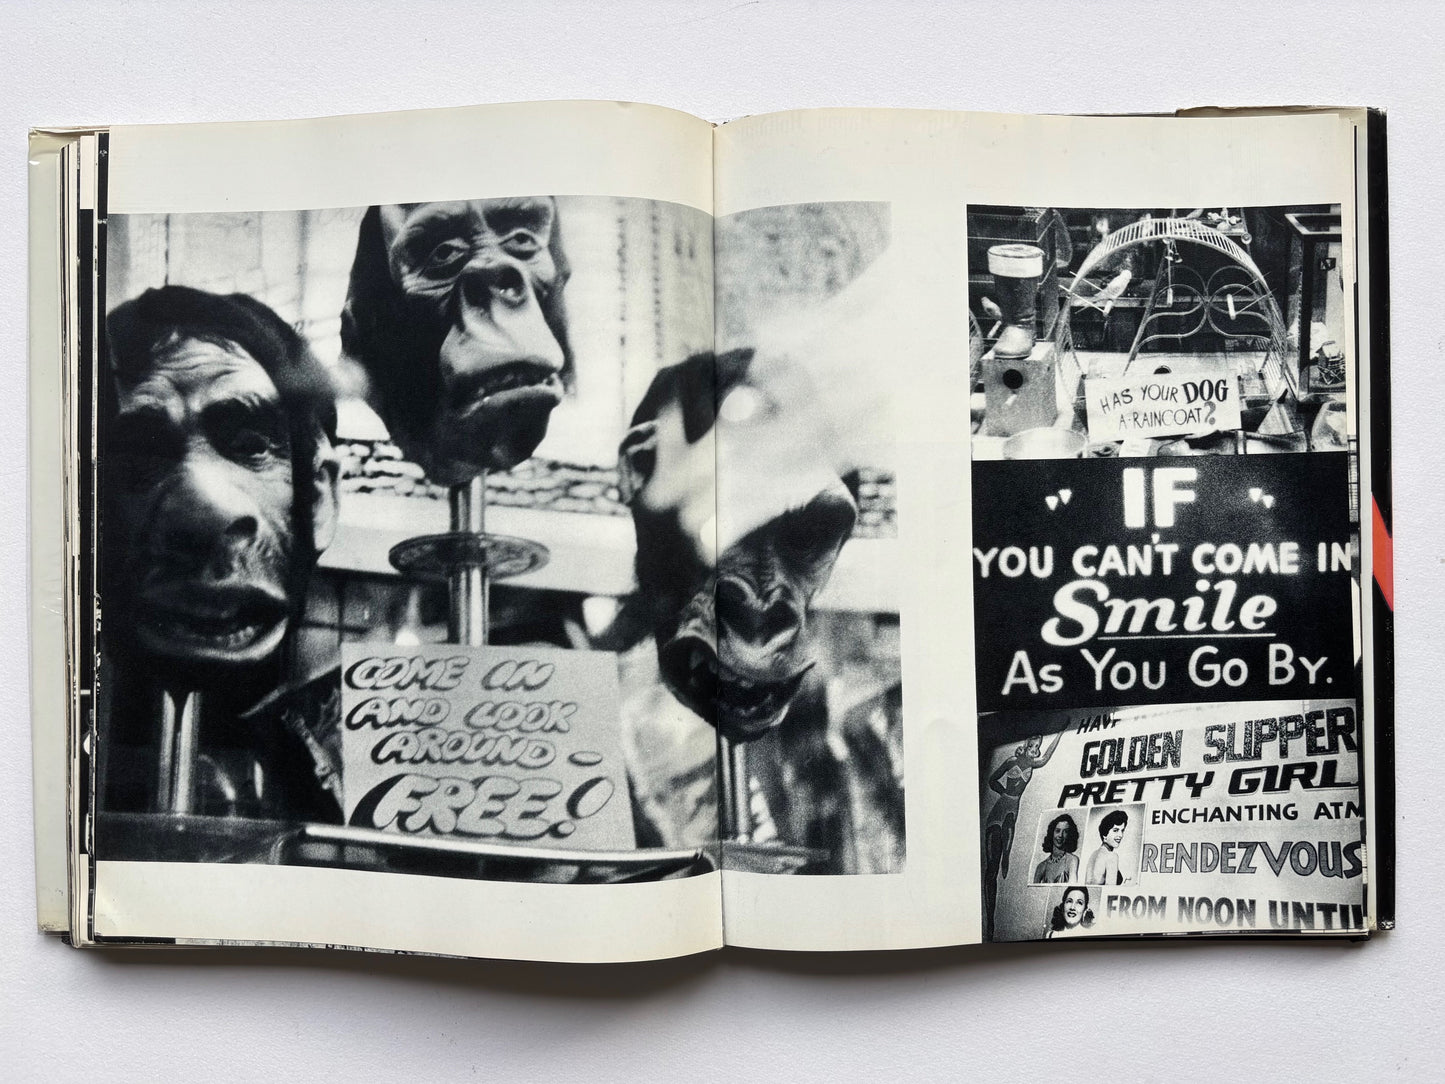 COME IN
AND LOOK
AROUND -
FREE!
HAS YOUR DOG
A-RAINCOAT?
" IF "
YOU CAN'T COME IN
Smile
AS YOU GO BY.
HAVE
GOLDEN SLIPPER
PRETTY GIRL
ENCHANTING ATM
RENDEZVOUS
FROM NOON UNTIL